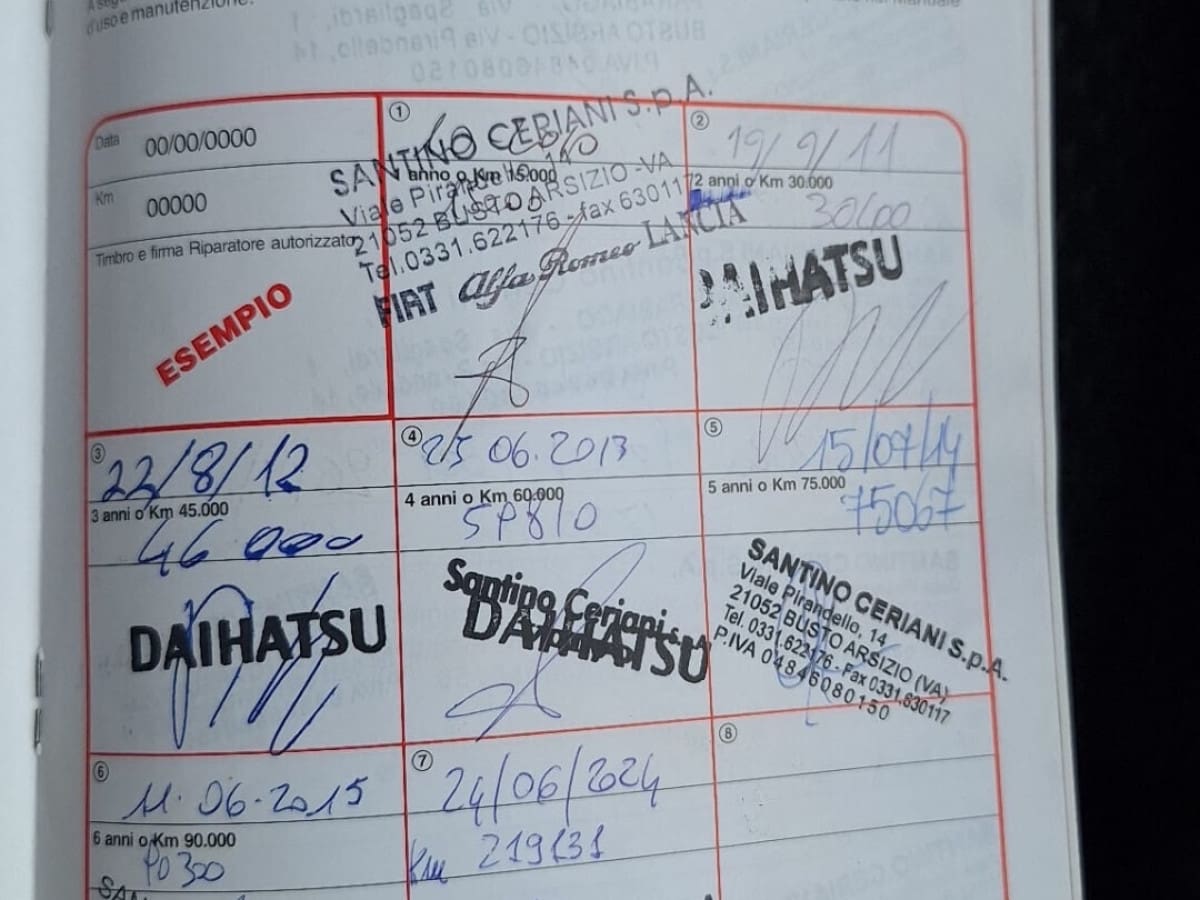 d'uso e manutenzione.
Data 00/00/0000
Km 00000
Timbro e firma Riparatore autorizzato
ESEMPIO
1
anno o Km 15.000
SANTINO CERIANI S.p.A.
Viale Pirandello, 14
21052 BUSTO ARSIZIO -VA
Tel.0331.622176 - fax 630117
FIAT Alfa Romeo LANCIA
2
19/9/11
2 anni o Km 30.000
30000
DAIHATSU
3
22/8/12
3 anni o Km 45.000
46 000
DAIHATSU
4
25 06.2013
4 anni o Km 60.000
Santino Ceriani s.p.A.
DAIHATSU
5
15/07/14
5 anni o Km 75.000
75067
SANTINO CERIANI S.p.A.
Viale Pirandello, 14
21052 BUSTO ARSIZIO (VA)
Tel. 0331.622176 - Fax 0331.630117
P.IVA 04846080150
6
11.06.2015
6 anni o Km 90.000
90300
7
24/06/2024
Km 219131
8